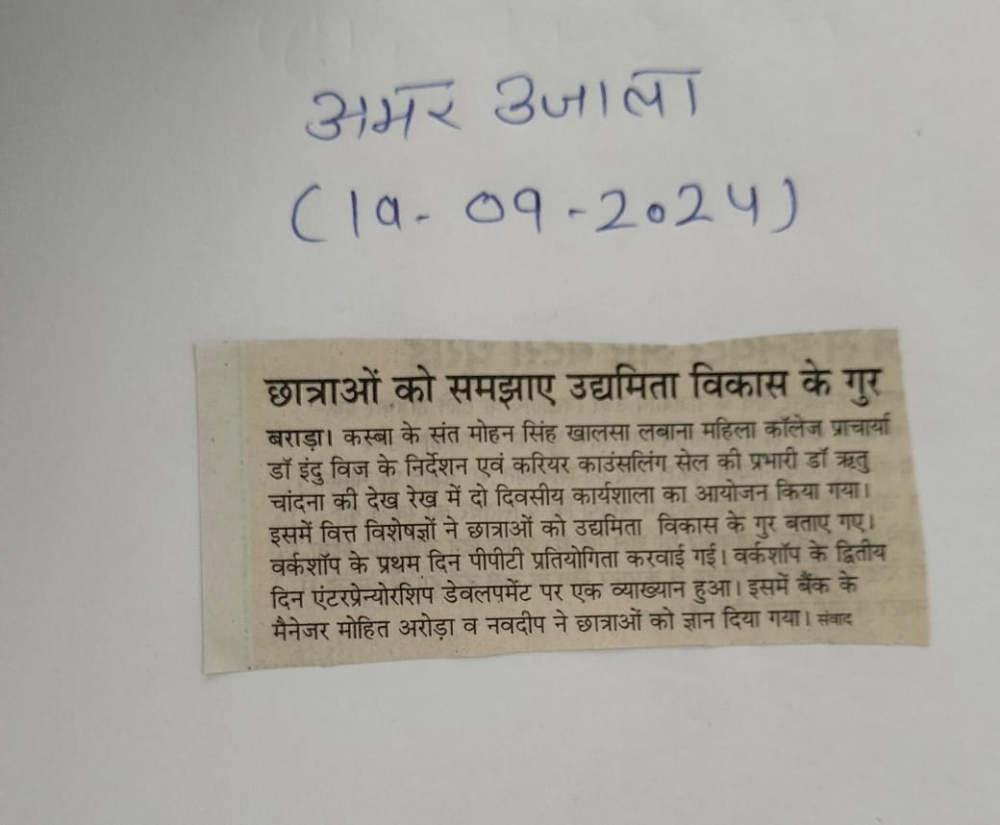 अमर उजाला
(19-09-2024)
छात्राओं को समझाए उद्यमिता विकास के गुर
बराड़ा। कस्बा के संत मोहन सिंह खालसा लबाना महिला कॉलेज प्राचार्या
डॉ इंदु विज के निर्देशन एवं करियर काउंसलिंग सेल की प्रभारी डॉ ऋतु
चांदना की देख रेख में दो दिवसीय कार्यशाला का आयोजन किया गया।
इसमें वित्त विशेषज्ञों ने छात्राओं को उद्यमिता विकास के गुर बताए गए।
वर्कशॉप के प्रथम दिन पीपीटी प्रतियोगिता करवाई गई। वर्कशॉप के द्वितीय
दिन एंटरप्रेन्योरशिप डेवलपमेंट पर एक व्याख्यान हुआ। इसमें बैंक के
मैनेजर मोहित अरोड़ा व नवदीप ने छात्राओं को ज्ञान दिया गया। संवाद